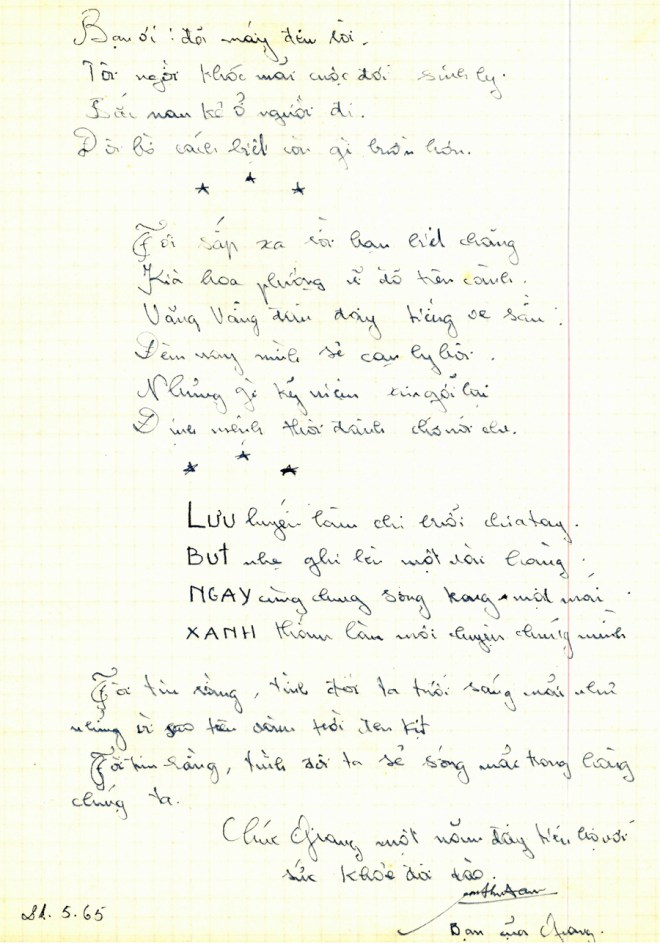 Bạn ơi ! đời mấy đến rồi.
Tôi người khóc mãi cuộc đời sinh ly.
nan kẻ ở người đi.
cách biệt còn gì buồn hơn.
Tôi sắp xa rồi bạn biết chăng
Kìa hoa phượng vĩ đỏ trên cành.
Vẳng Vẳng đâu đây tiếng ve sầu
Đêm nay mình sẽ cạn ly bôi.
Những gì kỷ niệm xin gởi lại
thôi đành
LƯU luyến làm chi buổi chia tay.
BÚT nhẹ ghi lên một vài hàng
NGÀY cùng chung sống trong một mái
XANH thắm lên mới chuyện chúng mình
Tôi tin rằng, tình đôi ta trong sáng mãi như
những vì sao trên vòm trời đen kịt
Tôi tin rằng, tình đôi ta sẽ sống mãi trong lòng
chúng ta.
Chúc Giang một năm đầy tiến bộ với
sức khỏe dồi dào.
5.65
Bạn của Giang.